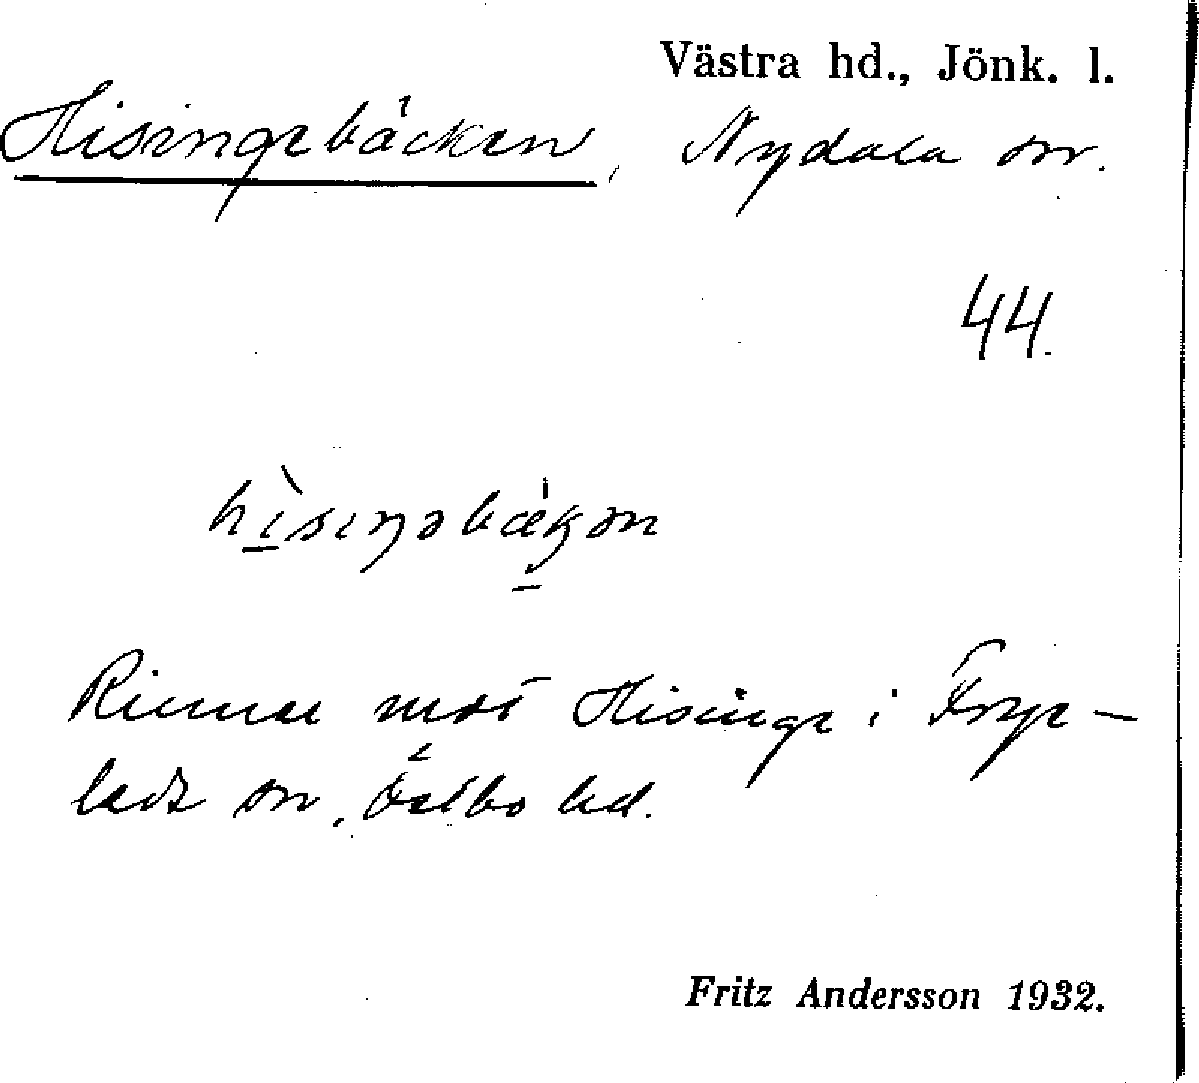 Västra hd., Jönk. l.
Hisingebäcken, Nydala sn.
44.
Rinner mot Hisinge i Frye-
leds sn, Östbo hd.
Fritz Andersson 1932.